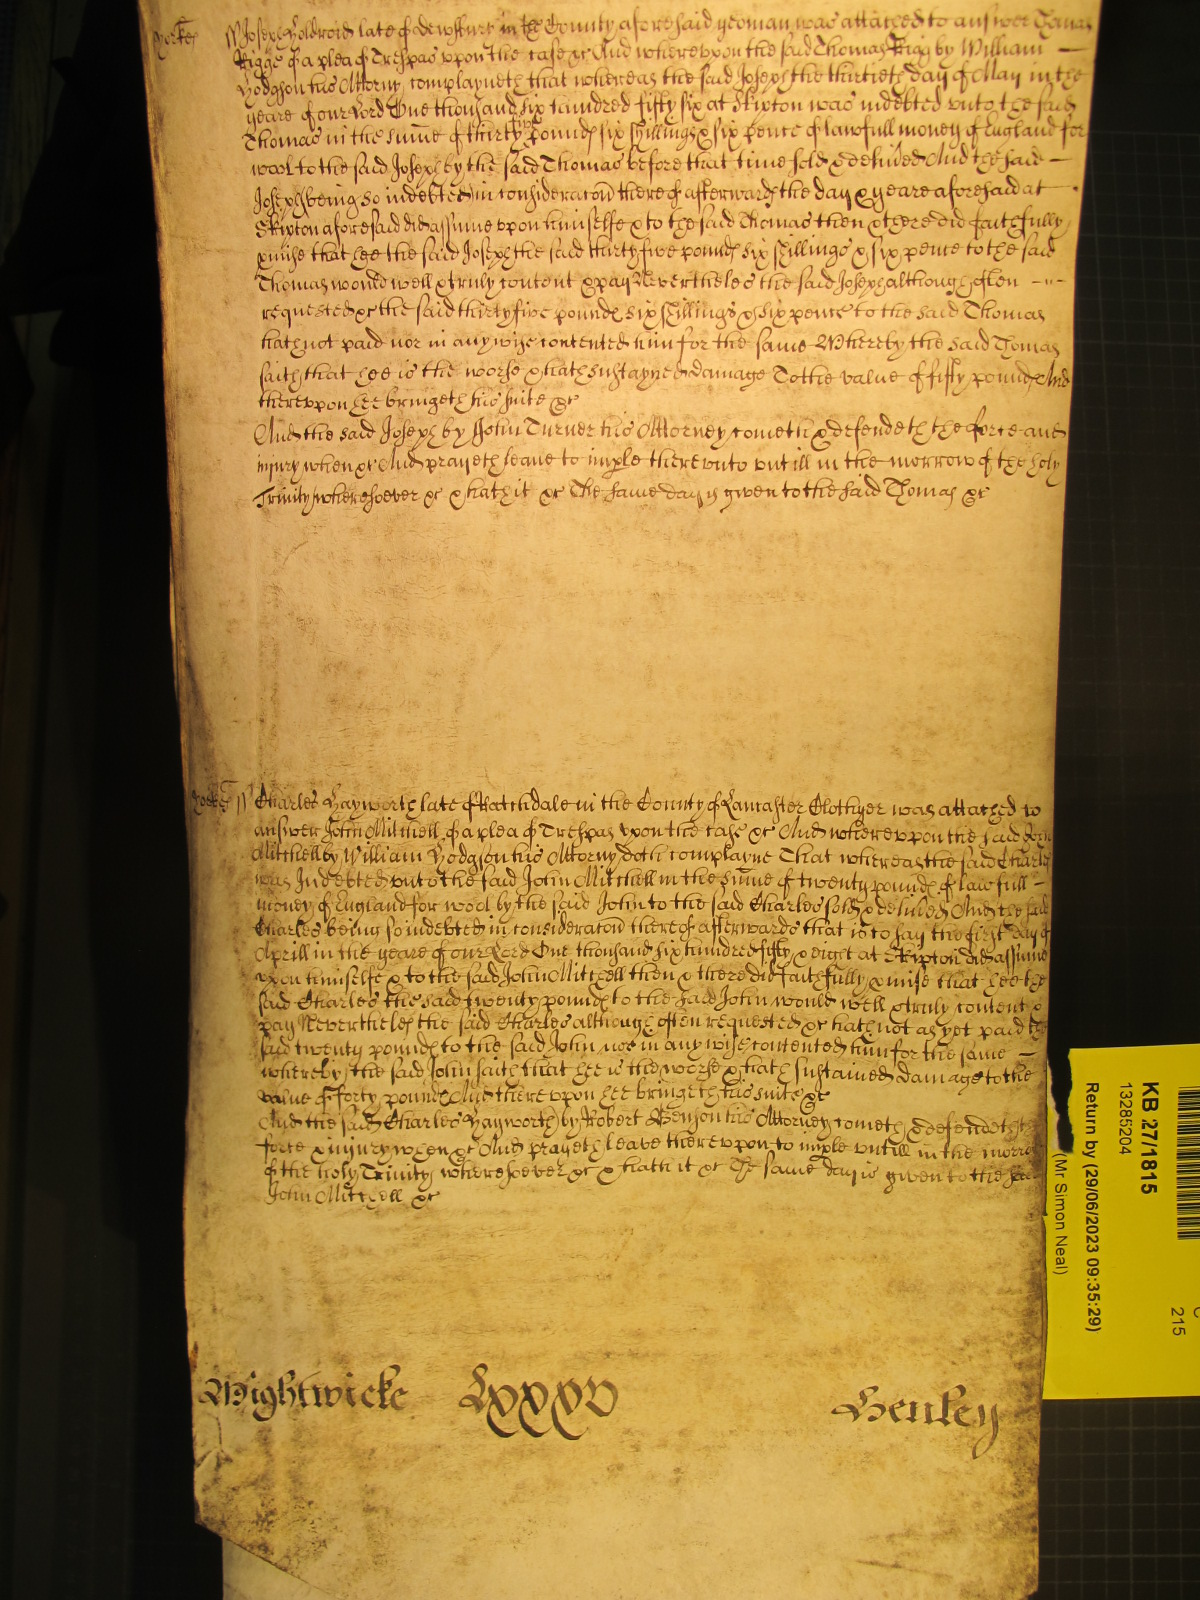 Yorkes ss Joseph Holdroid late of dewsbury in the County aforesaid yeoman was attached to answer Thomas
Rigge of a plea of Trespas upon the case &c And whereupon the said Thomas Rigg by William —
Hodgson his Attorny complayneth that whereas the said Joseph the thirtieth day of May in the
yeare of our Lord One thousand six hundred fifty six at Skipton was indebted unto the said
Thomas in the sume of thirty five pounds six shillings & six pence of lawfull money of England for
wool to the said Joseph by the said Thomas before that time sold & delived And the said —
Joseph being so indebted in consideracon thereof afterwards the day & yeare aforesaid at —
Skipton aforesaid did assume upon himselfe & to the said Thomas then & there did faithfully
pmise that hee the said Joseph the said thirty five pounds six shillings & six pence to the said
Thomas would well & truly content & pay Neverthelesse the said Joseph although often - - -
requested &c the said thirty five pounds six shillings & six pence to the said Thomas
hath not paid nor in any wise contented him for the same Whereby the said Thomas
saith that hee is the worse & hath sustayned damage To the value of fifty pounds And
thereupon hee bringeth his suite &c
And the said Joseph by John Turner his Attorney cometh & defendeth the force and
injury when &c And prayeth leave to imple thereunto untill in the morrow of the holy
Trinity wheresoever &c & hath it &c The same day is given to the said Thomas &c
Yorkes ss Charles Hayworth late of Ratchdale in the County of Lancaster Clothier was attached to
answer John Mitchell of a plea of Trespas upon the case &c And whereupon the said John
Mitchell by William Hodgson his Attorny doth complayne That whereas the said Charles
was Indebted unto the said John Mitchell in the sume of twenty pounds of lawfull —
money of England for wool by the said John to the said Charles sold & delived And the said
Charles being so indebted in consideracon thereof afterwards that is to say the first day of
Aprill in the yeare of our Lord One thousand six hundred fifty & eight at Skipton did assume
upon himselfe & to the said John Mitchell then & there did faithfully pmise that hee the
said Charles the said twenty pounds to the said John would well & truly content &
pay Neverthelesse the said Charles although often requested &c hath not as yet paid the
said twenty pounds to the said John nor in any wise contented him for the same —
whereby the said John saith that hee is the worse & hath sustained damage to the
value of forty pounds And thereupon hee bringeth his suite &c
And the said Charles Hayworth by Robert Benson his Attorney cometh & defendeth the
force & injury when &c And prayeth leave thereupon to imple untill in the morrow
of the holy Trinity wheresoever &c & hath it &c The same day is given to the said
John Mitchell &c
Wightwicke LXXXV Henley
KB 27/1815
13285204
Return by (29/06/2023 09:35:29)
(Mr Simon Neal)
215